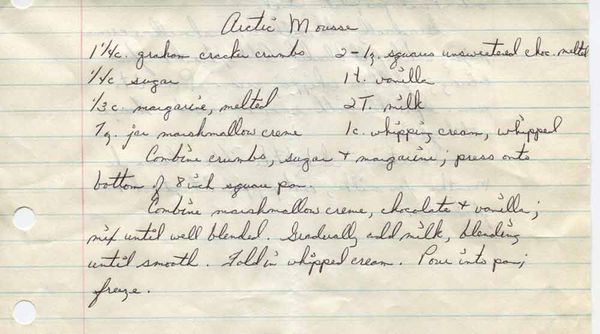 Arctic Mousse
1 1/4 c. graham cracker crumbs 2 - 1 q. squares unsweetened choc. melted
1/4 c sugar 1 t. vanilla
1/3 c. margarine, melted 2 T. milk
7 q. jar marshmallow creme 1 c. whipping cream, whipped
Combine crumbs, sugar + margarine; press onto
bottom of 8 inch square pan.
Combine marshmallow creme, chocolate + vanilla;
mix until well blended. Gradually add milk, blending
until smooth. Fold in whipped cream. Pour into pan;
freeze.